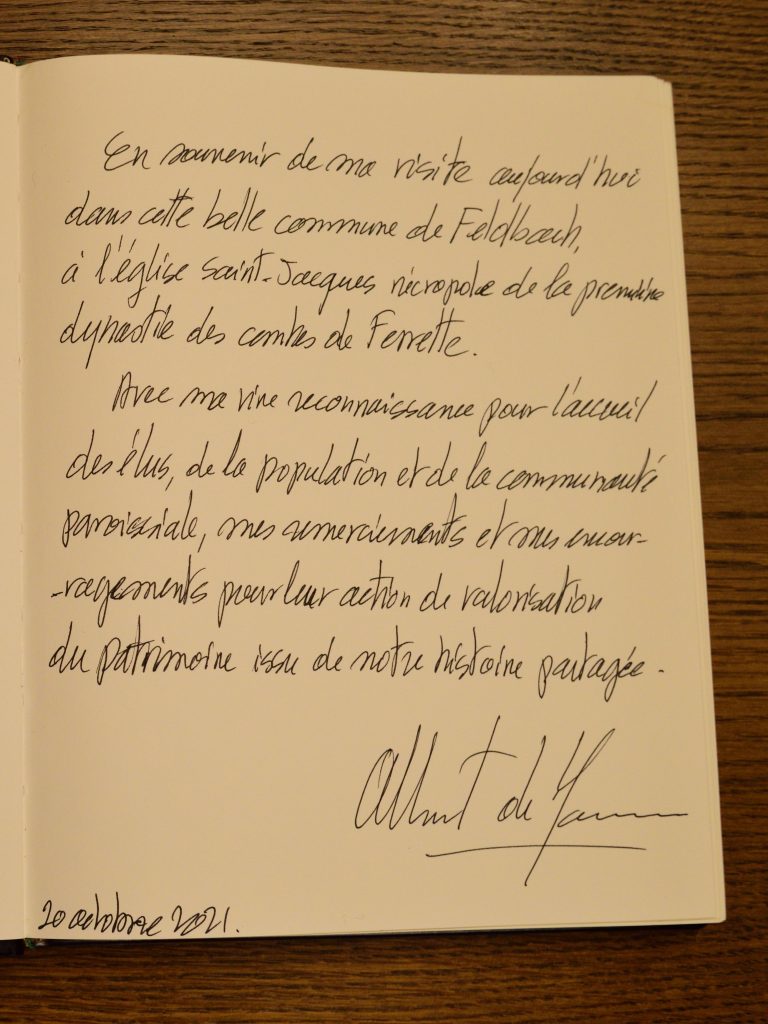 En souvenir de ma visite aujourd'hui
dans cette belle commune de Feldbach,
à l'église Saint-Jacques nécropole de la première
dynastie des comtes de Ferrette.
Avec ma vive reconnaissance pour l'accueil
des élus, de la population et de la communauté
paroissiale, mes remerciements et mes encou-
-ragements pour leur action de valorisation
du patrimoine issu de notre histoire partagée.
Albert de Monaco
20 octobre 2021.